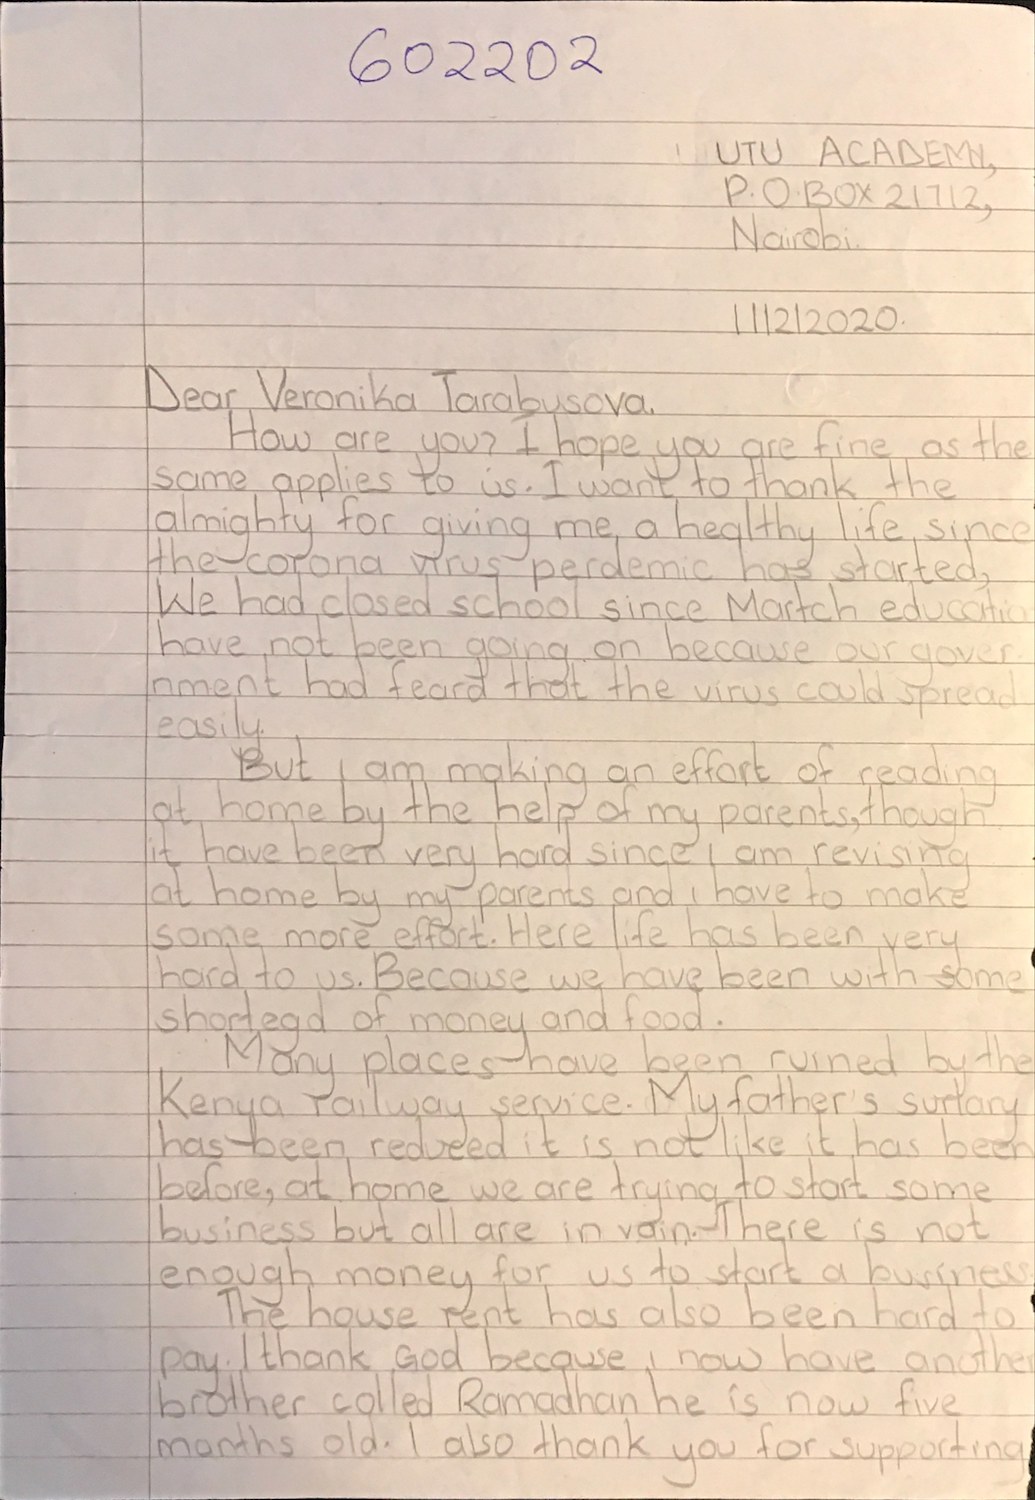 602202
UTU ACADEMY,
P.O.BOX 21712,
Nairobi.
1/12/2020.
Dear Veronika Tarabusova.
How are you? I hope you are fine as the
same applies to us. I want to thank the
almighty for giving me a healthy life since
the corona virus perdemic has started,
We had closed school since Martch educatio
have not been going on because our gover
nment had feard that the virus could spread
easily.
But i am making an effort of reading
at home by the help of my parents, though
it have been very hard since i am revising
at home by my parents and i have to make
some more effort. Here life has been very
hard to us. Because we have been with some
shortegd of money and food.
Many places have been ruined by the
Kenya railway service. My father's surlary
has been reduced it is not like it has been
before, at home we are trying to start some
business but all are in vain. There is not
enough money for us to start a business
The house rent has also been hard to
pay. I thank God because i now have another
brother called Ramadhan he is now five
months old. I also thank you for supporting